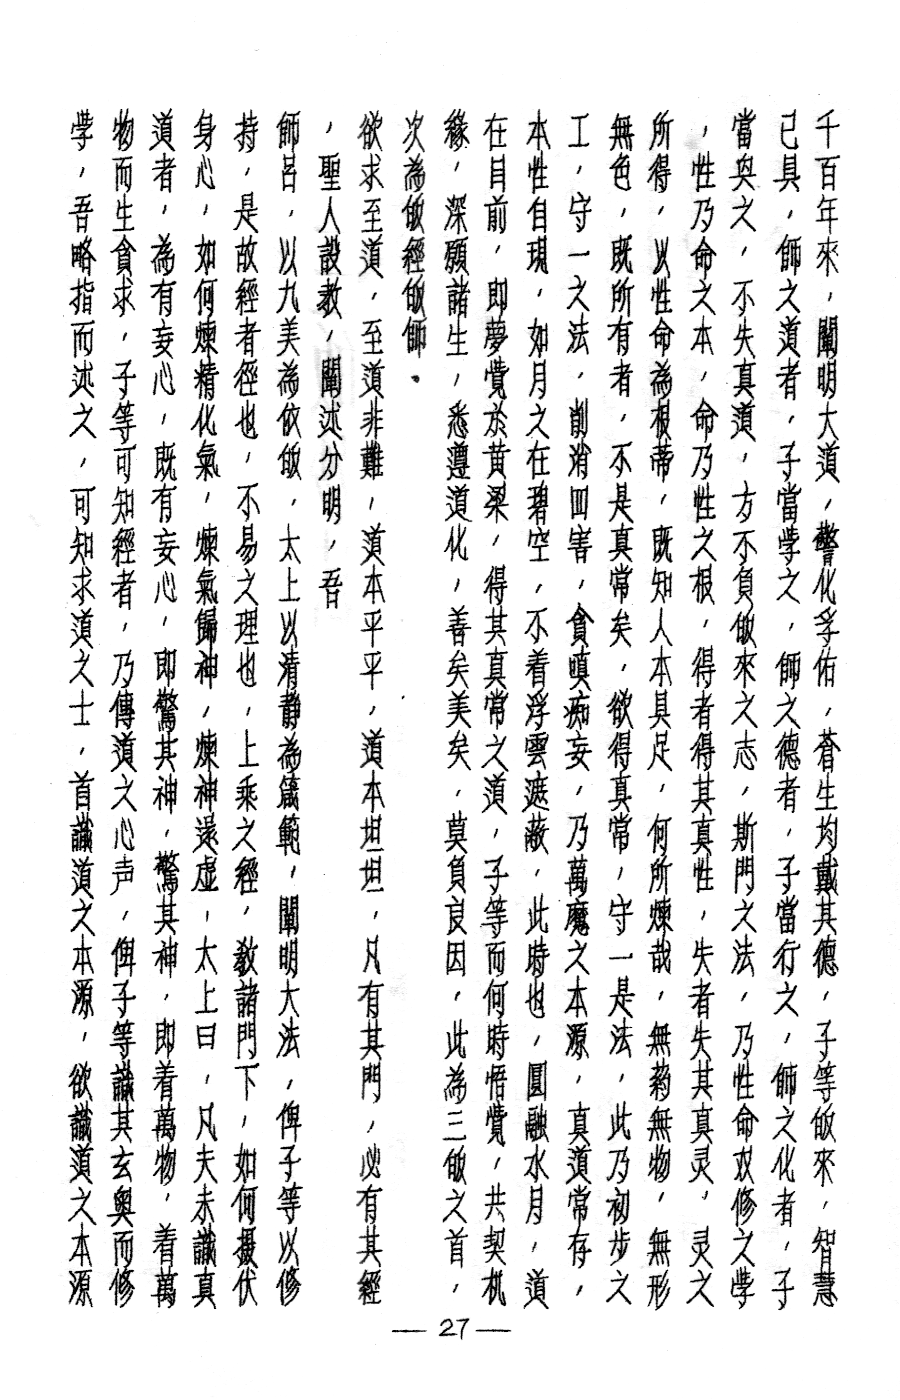 千百年來，闡明大道，警化孚佑，蒼生均戴其德，子等皈來，智慧
已具，師之道者，子當學之，師之德者，子當行之，師之化者，子
當與之，不失真道，方不負皈來之志，斯門之法，乃性命双修之學
，性乃命之本，命乃性之根，得者得其真性，失者失其真灵，灵之
所得，以性命為根蒂，既知人本具足，何所煉哉，無葯無物，無形
無色，既所有者，不是真常矣，欲得真常，守一是法，此乃初步之
工，守一之法，削消四害，貪嗔痴妄，乃萬魔之本源，真道常存，
本性自現，如月之在碧空，不着浮雲遮蔽，此時也，圓融水月，道
在目前，即夢覺於黃梁，得其真常之道，子等而何時悟覺，共契机
緣，深願諸生，悉遵道化，善矣美矣，莫負良因，此為三皈之首，
次為皈經皈師．
欲求至道，至道非難，道本平平，道本坦坦，凡有其門，必有其經
，聖人設教，闡述分明，吾
師呂，以九美為依皈，太上以清静為箴範，闡明大法，俾子等以修
持，是故經者徑也，不易之理也，上乘之經，教諸門下，如何摄伏
身心，如何煉精化氣，煉氣歸神，煉神還虛，太上曰，凡夫未識真
道者，為有妄心，既有妄心，即驚其神，驚其神，即着萬物，着萬
物而生貪求，子等可知經者，乃傳道之心声，俾子等識其玄奧而修
學，吾略指而述之，可知求道之士，首識道之本源，欲識道之本源
27